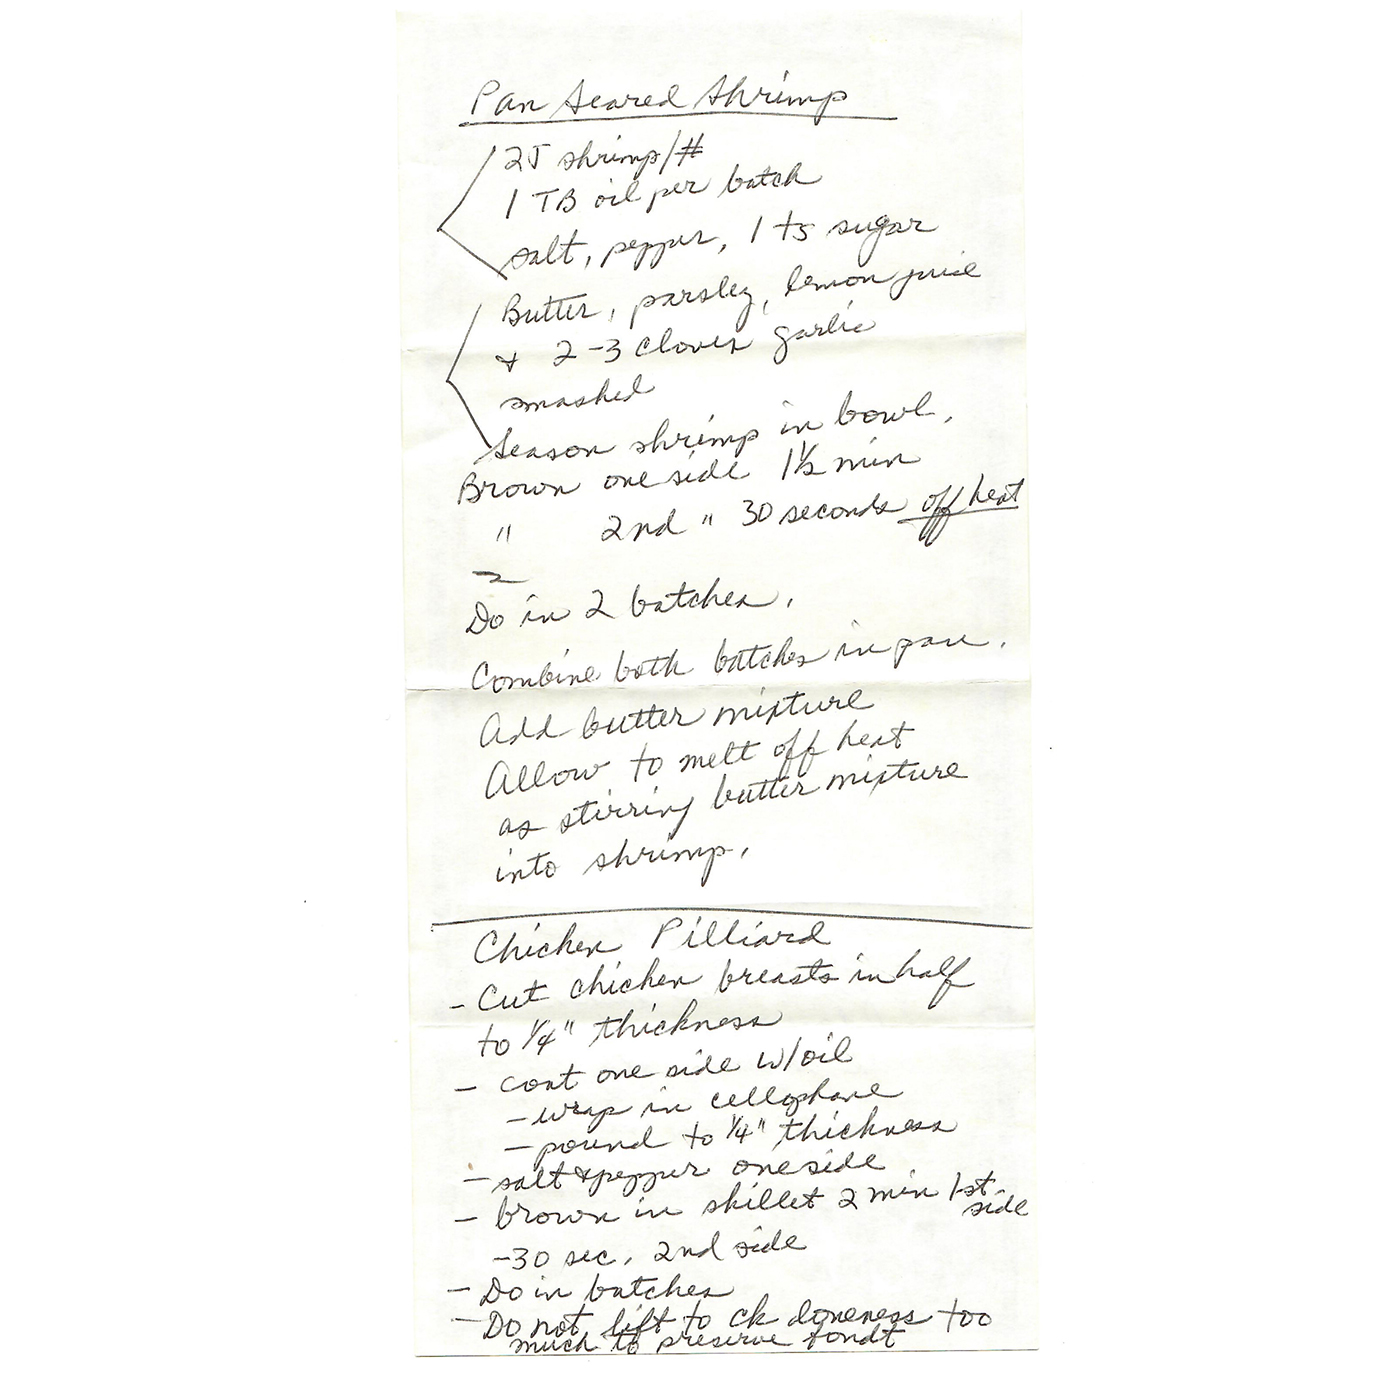 Pan Seared Shrimp
25 shrimp/#
1 TB oil per batch
salt, pepper, 1 ts sugar
Butter, parsley, lemon juice
& 2-3 cloves garlic
smashed
Season shrimp in bowl.
Brown one side 1½ min
" 2nd " 30 seconds off heat
Do in 2 batches.
Combine both batches in pan.
Add butter mixture
Allow to melt off heat
as stirring butter mixture
into shrimp.
Chicken Pilliard
- Cut chicken breasts in half
to ¼" thickness
- coat one side w/oil
- wrap in cellophane
- pound to ¼" thickness
- salt & pepper one side
- brown in skillet 2 min 1st
side
- 30 sec. 2nd side
- Do in batches
- Do not lift to ck doneness too
much to preserve fondt